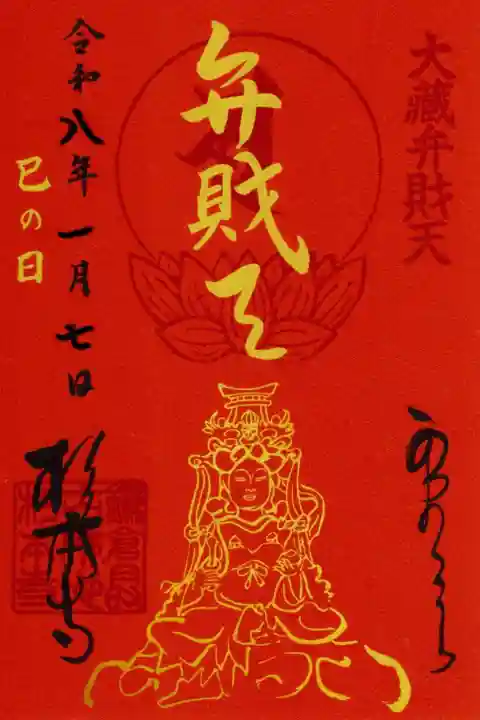 大藏弁財天
弁財天
令和八年一月七日
巳の日
杉本寺